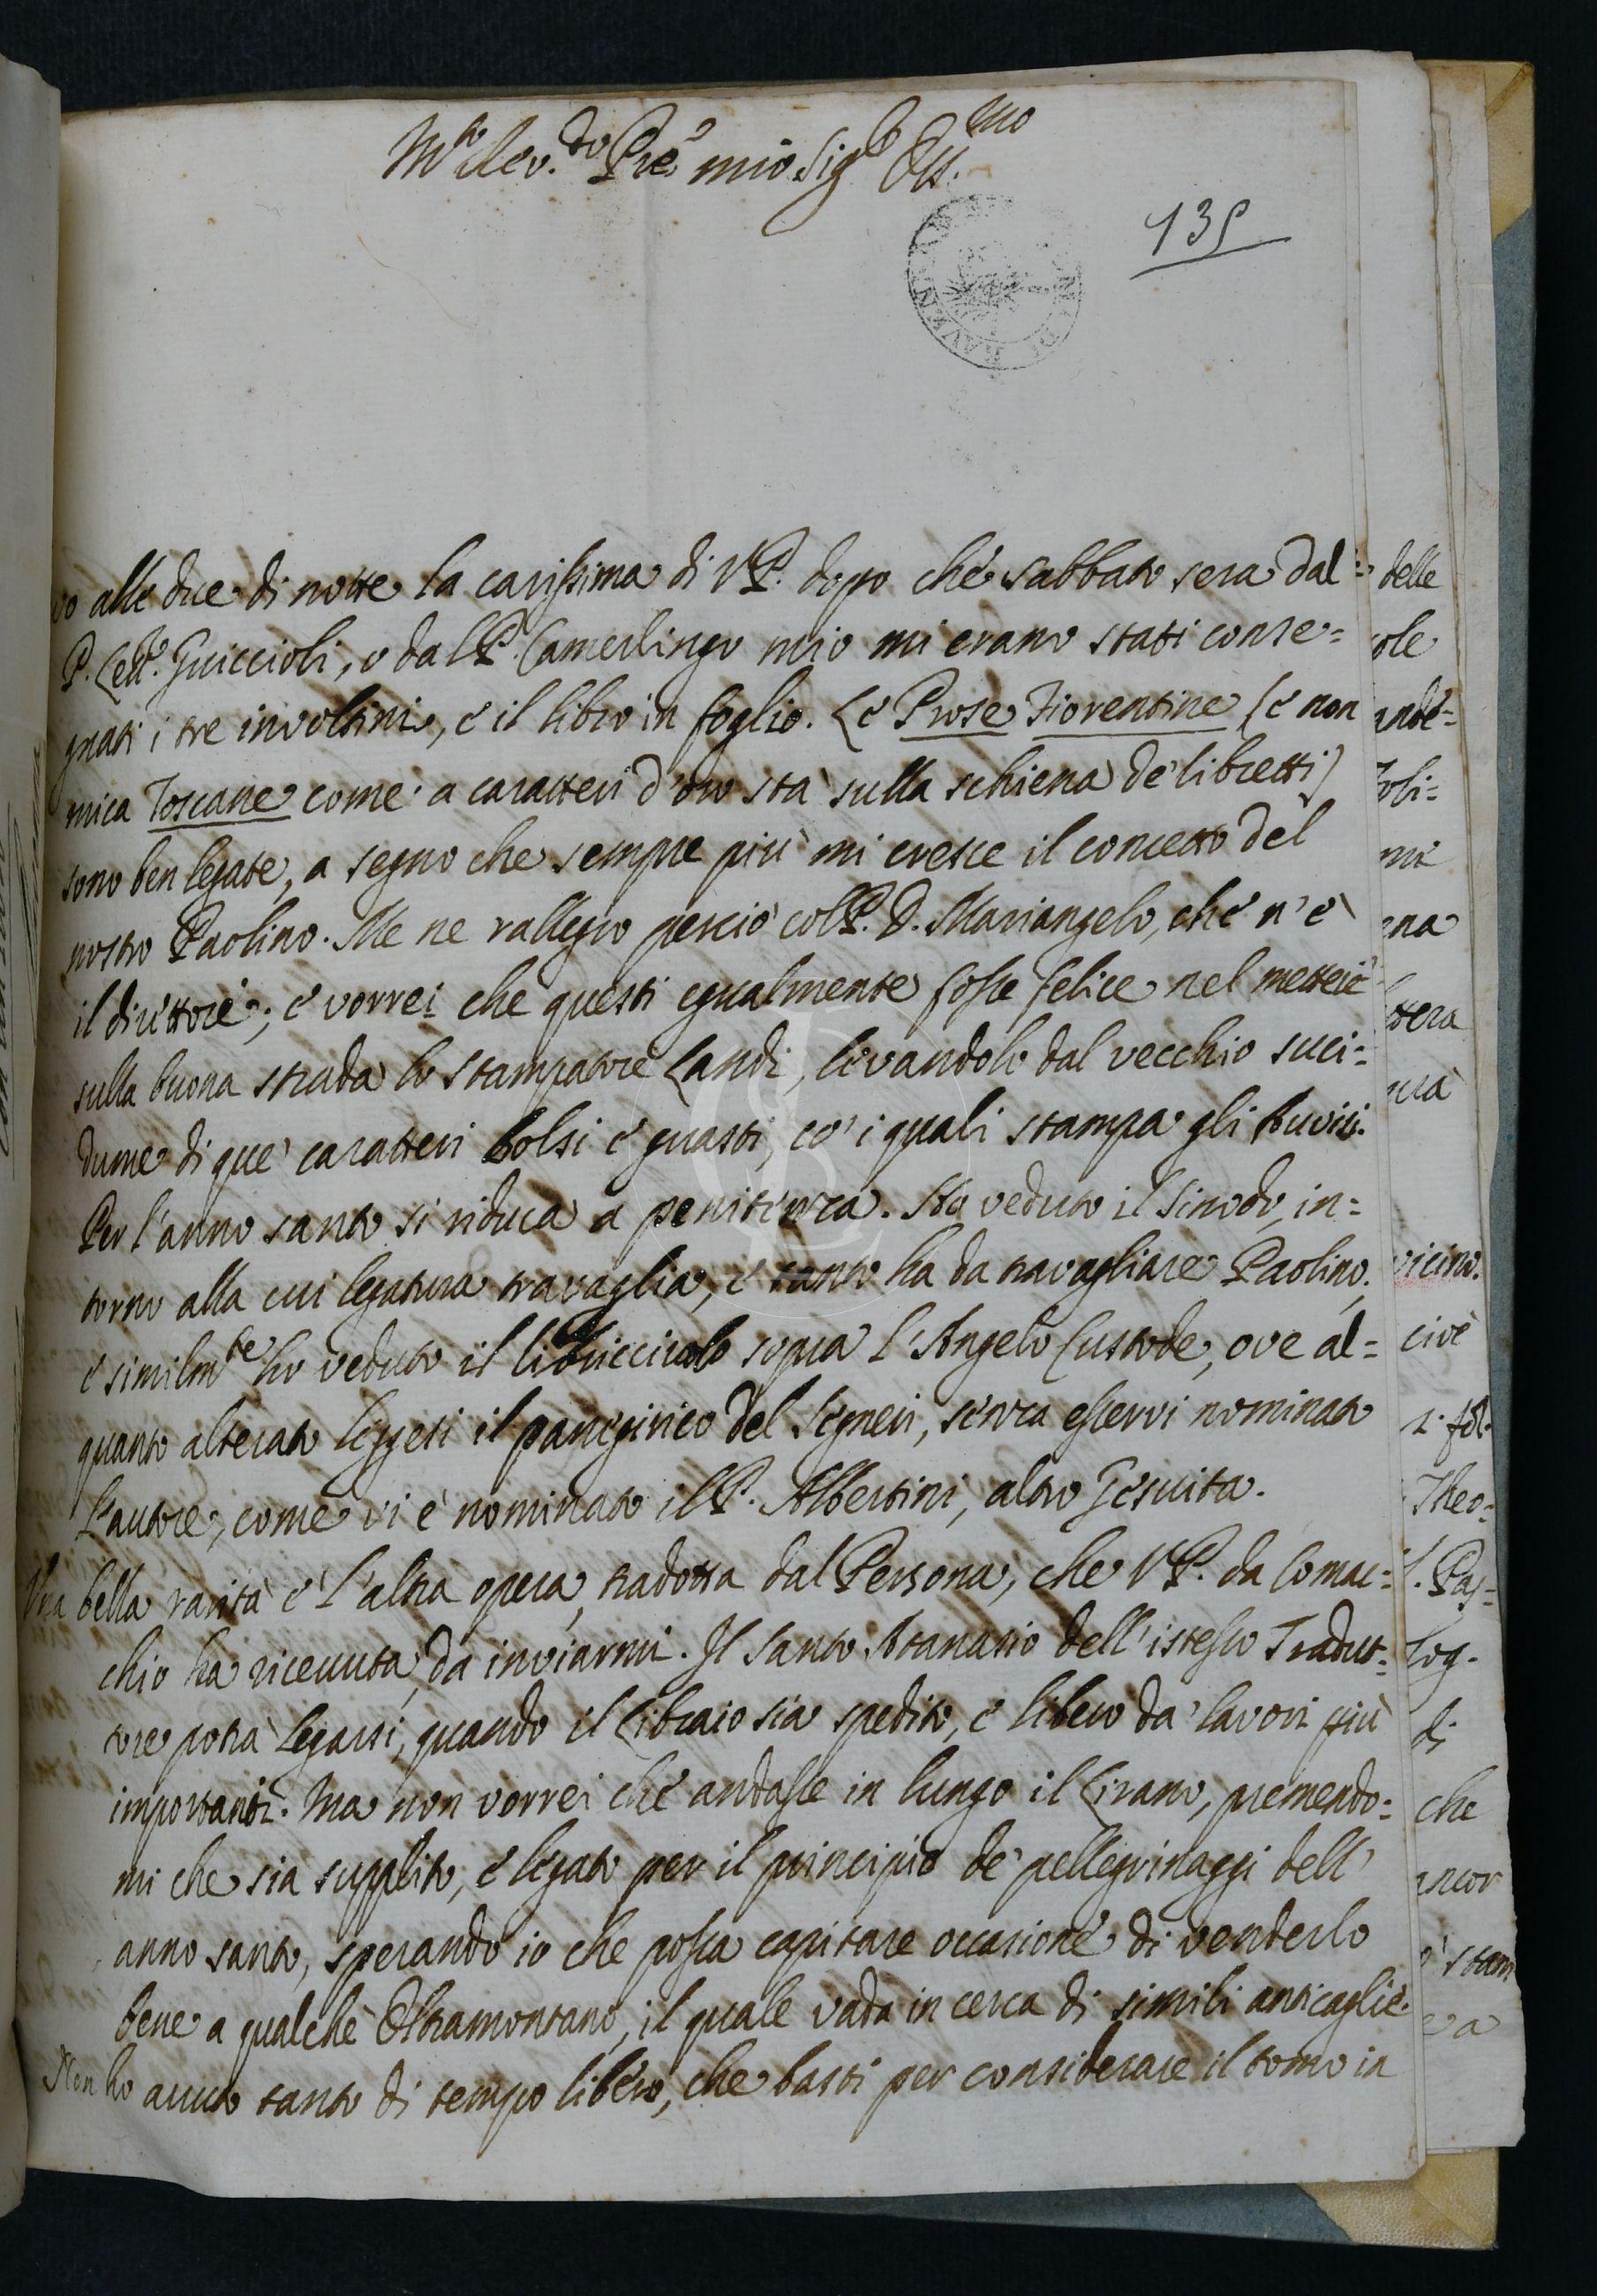 M.to Rev.do Pre mio Sig.re Oss.mo
135
alle due di notte la carissima di VP. dopo che sabbato sera dal
P. Lett.e Guiccioli, o dal P. Camerlingo mio mi erano stati conse=
gnati i tre involtini, e il libro in foglio. Le Prose Fiorentine (e non
mica Toscane come a caratteri d'oro sta sulla schiena de' libretti)
sono ben legate, a segno che sempre più mi cresce il concetto del
nostro Paolino. Me ne rallegro perciò col P. D. Mariangelo, che n'è
il direttore; e vorrei che questi egualmente fosse felice nel mettere
sulla buona strada lo stampatore Landi, levandolo dal vecchio suci=
dume di que' caratteri bolsi e guasti, co' i quali stampa gli Avvisi.
Per l'anno santo si riduca a penitenza. Ho veduto il Sinodo, in=
torno alla cui legatura travaglia, e tanto ha da travagliare Paolino;
e similm.te ho veduto il libricciuolo sopra l'Angelo Custode, ove al=
quanto alterato leggesi il panegirico del Segneri, senza esservi nominato
l'autore, come vi è nominato il P. Albertini, altro Gesuita.
Una bella rarità è l'altra opera, tradotta dal Persona, che VP. da Comac=
chio ha ricevuta, da inviarmi. Il Santo Atanasio dell'istesso Tradut=
tore potrà legarsi, quando il Libraio sia spedito, e libero da' lavori più
importanti. Ma non vorrei che andasse in lungo il Lirano, premendo=
mi che sia supplito, e legato per il principio de' pellegrinaggi dell'
anno santo, sperando io che possa capitare occasione di venderlo
bene a qualche Oltramontano, il quale vada in cerca di simili anticaglie.
Non ho avuto tanto di tempo libero, che basti per considerare il tomo in
delle
mi
vicino.
cioè
Theo=
di
che
ancor